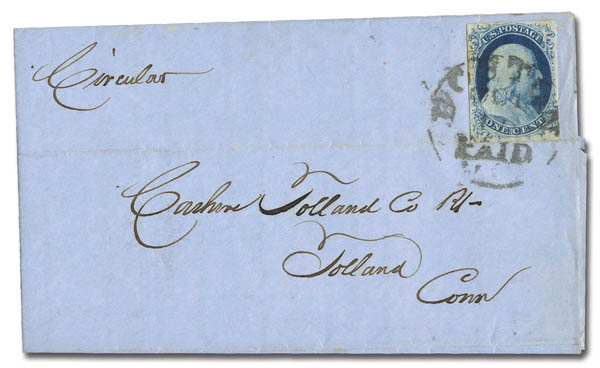 U.S. POSTAGE
Circular
ONE CENT
PAID
Cashre Tolland Co Bk
Tolland
Conn